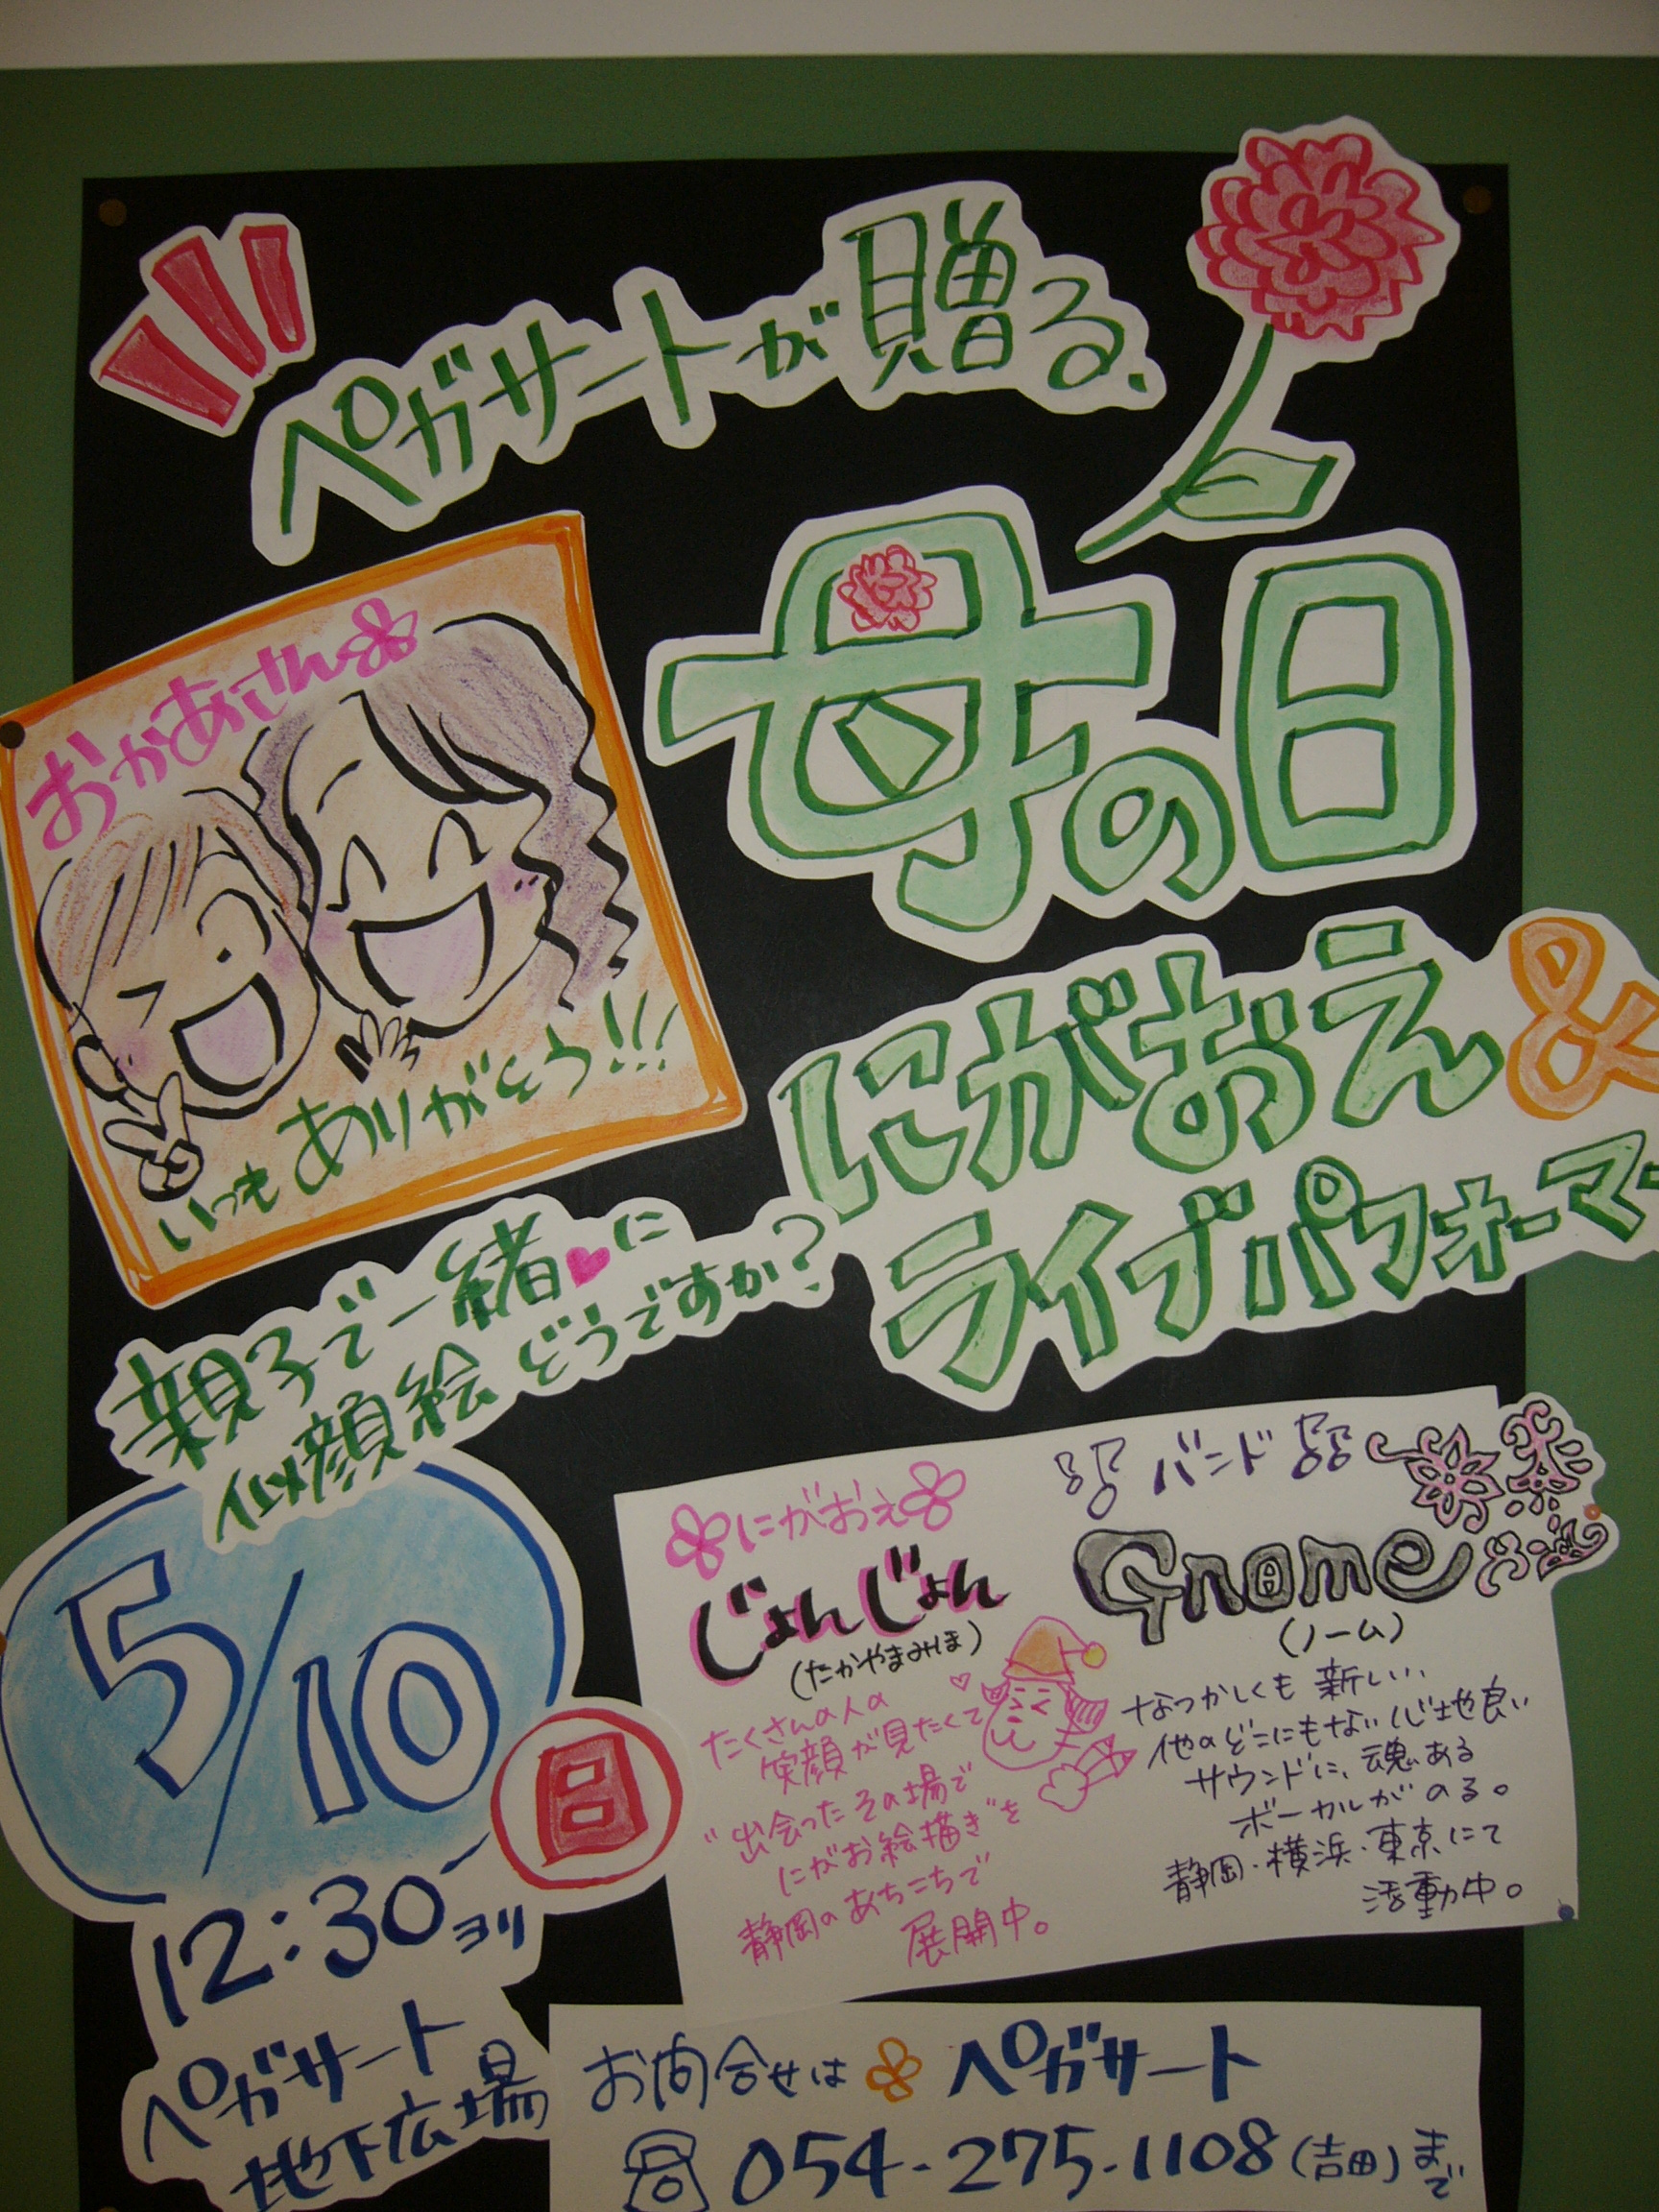 ペガサートが贈る、
母の日
にがおえ&
ライブパフォーマー
おかあさん
いつもありがとう!!!
親子で一緒に
似顔絵どうですか?
5/10
日
12:30ヨリ
ペガサート
地下広場
にがおえ
じょんじょん
(たかやまみほ)
たくさんの人の
笑顔が見たくて
"出会ったその場で
にがお絵描き"を
静岡のあちこちで
展開中。
バンド
Gnome
(ノーム)
なつかしくも新しい、
他のどこにもない心地良い
サウンドに、魂ある
ボーカルがのる。
静岡・横浜・東京にて
活動中。
お問合せは ペガサート
054-275-1108(吉田)まで